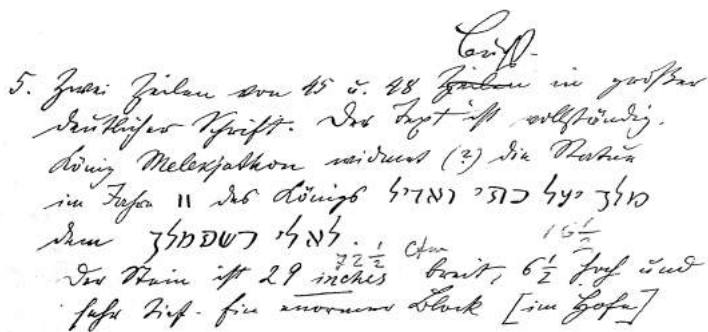 Buchst.
5. Zwei Zeilen von 45 u. 48 Zeilen in großer
deutlicher Schrift. Der Text ist vollständig.
König Melekjathon widmet (?) die Statue
im Jahre II des Königs מלך יעל כתי ואדיל
dem לאלי רשפמלך.
72 1/2 ctm 16 1/2
Der Stein ist 29 inches breit, 6 1/2 hoch und
sehr tief. Ein enormer Block [im Hofe]